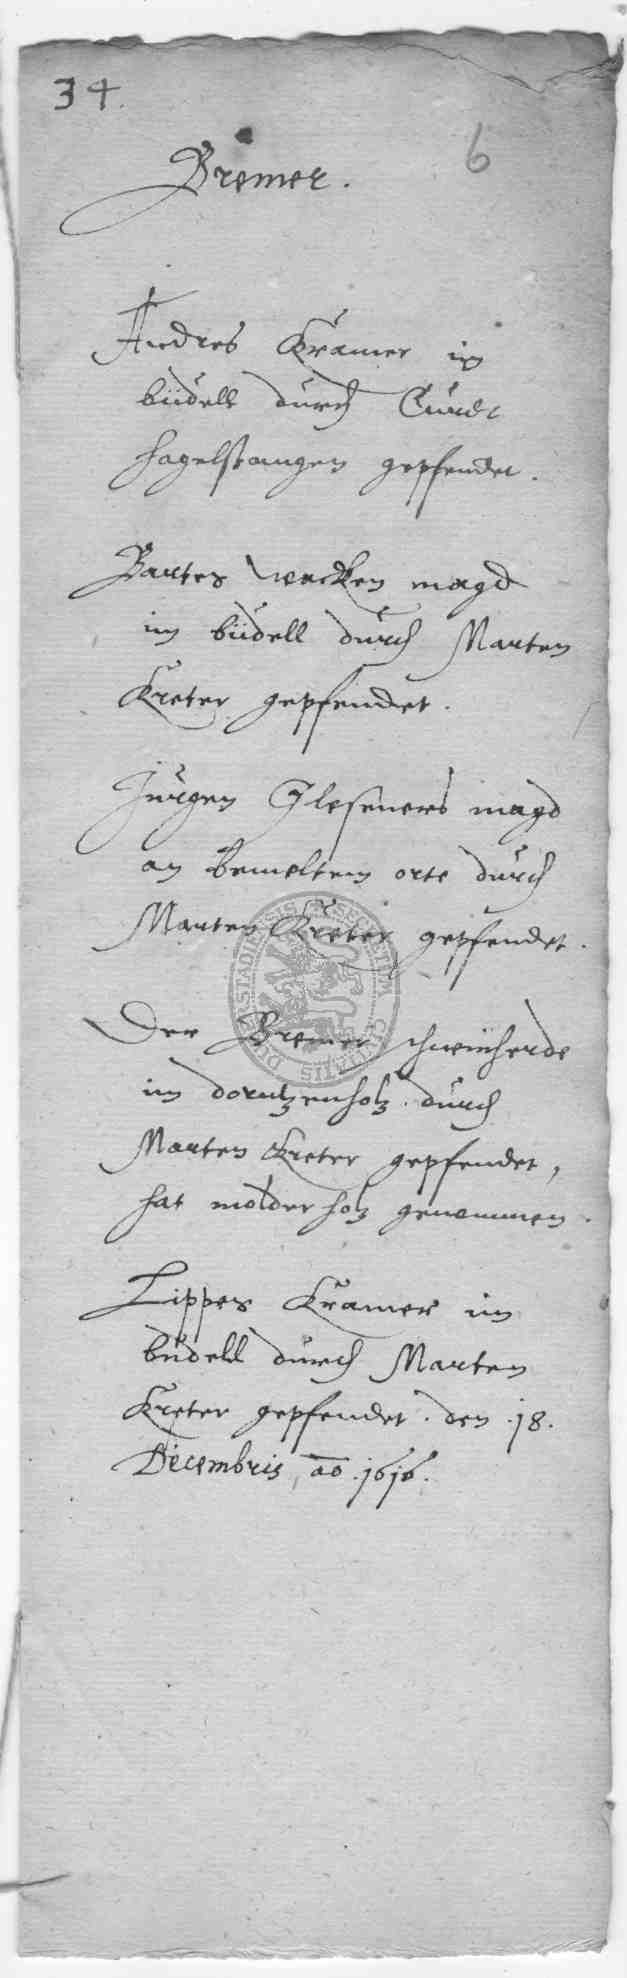 34.
6
Bremer.
Andres Kramer im
büdell durch Curdt
hagelstangen gepfendet.
Bartes wecken magd
im büdell durch Marten
Kreter gepfendet.
Jürgen Gleseners magd
an bemeltem orte durch
Marten Kreter gepfendet.
Der Bremer schweinherde
im dorntzenholz durch
Marten Kreter gepfendet,
hat molderholz genommen.
Lippes Kramer im
büdell durch Marten
Kreter gepfendet. den .18.
Decembris, ao .1616.